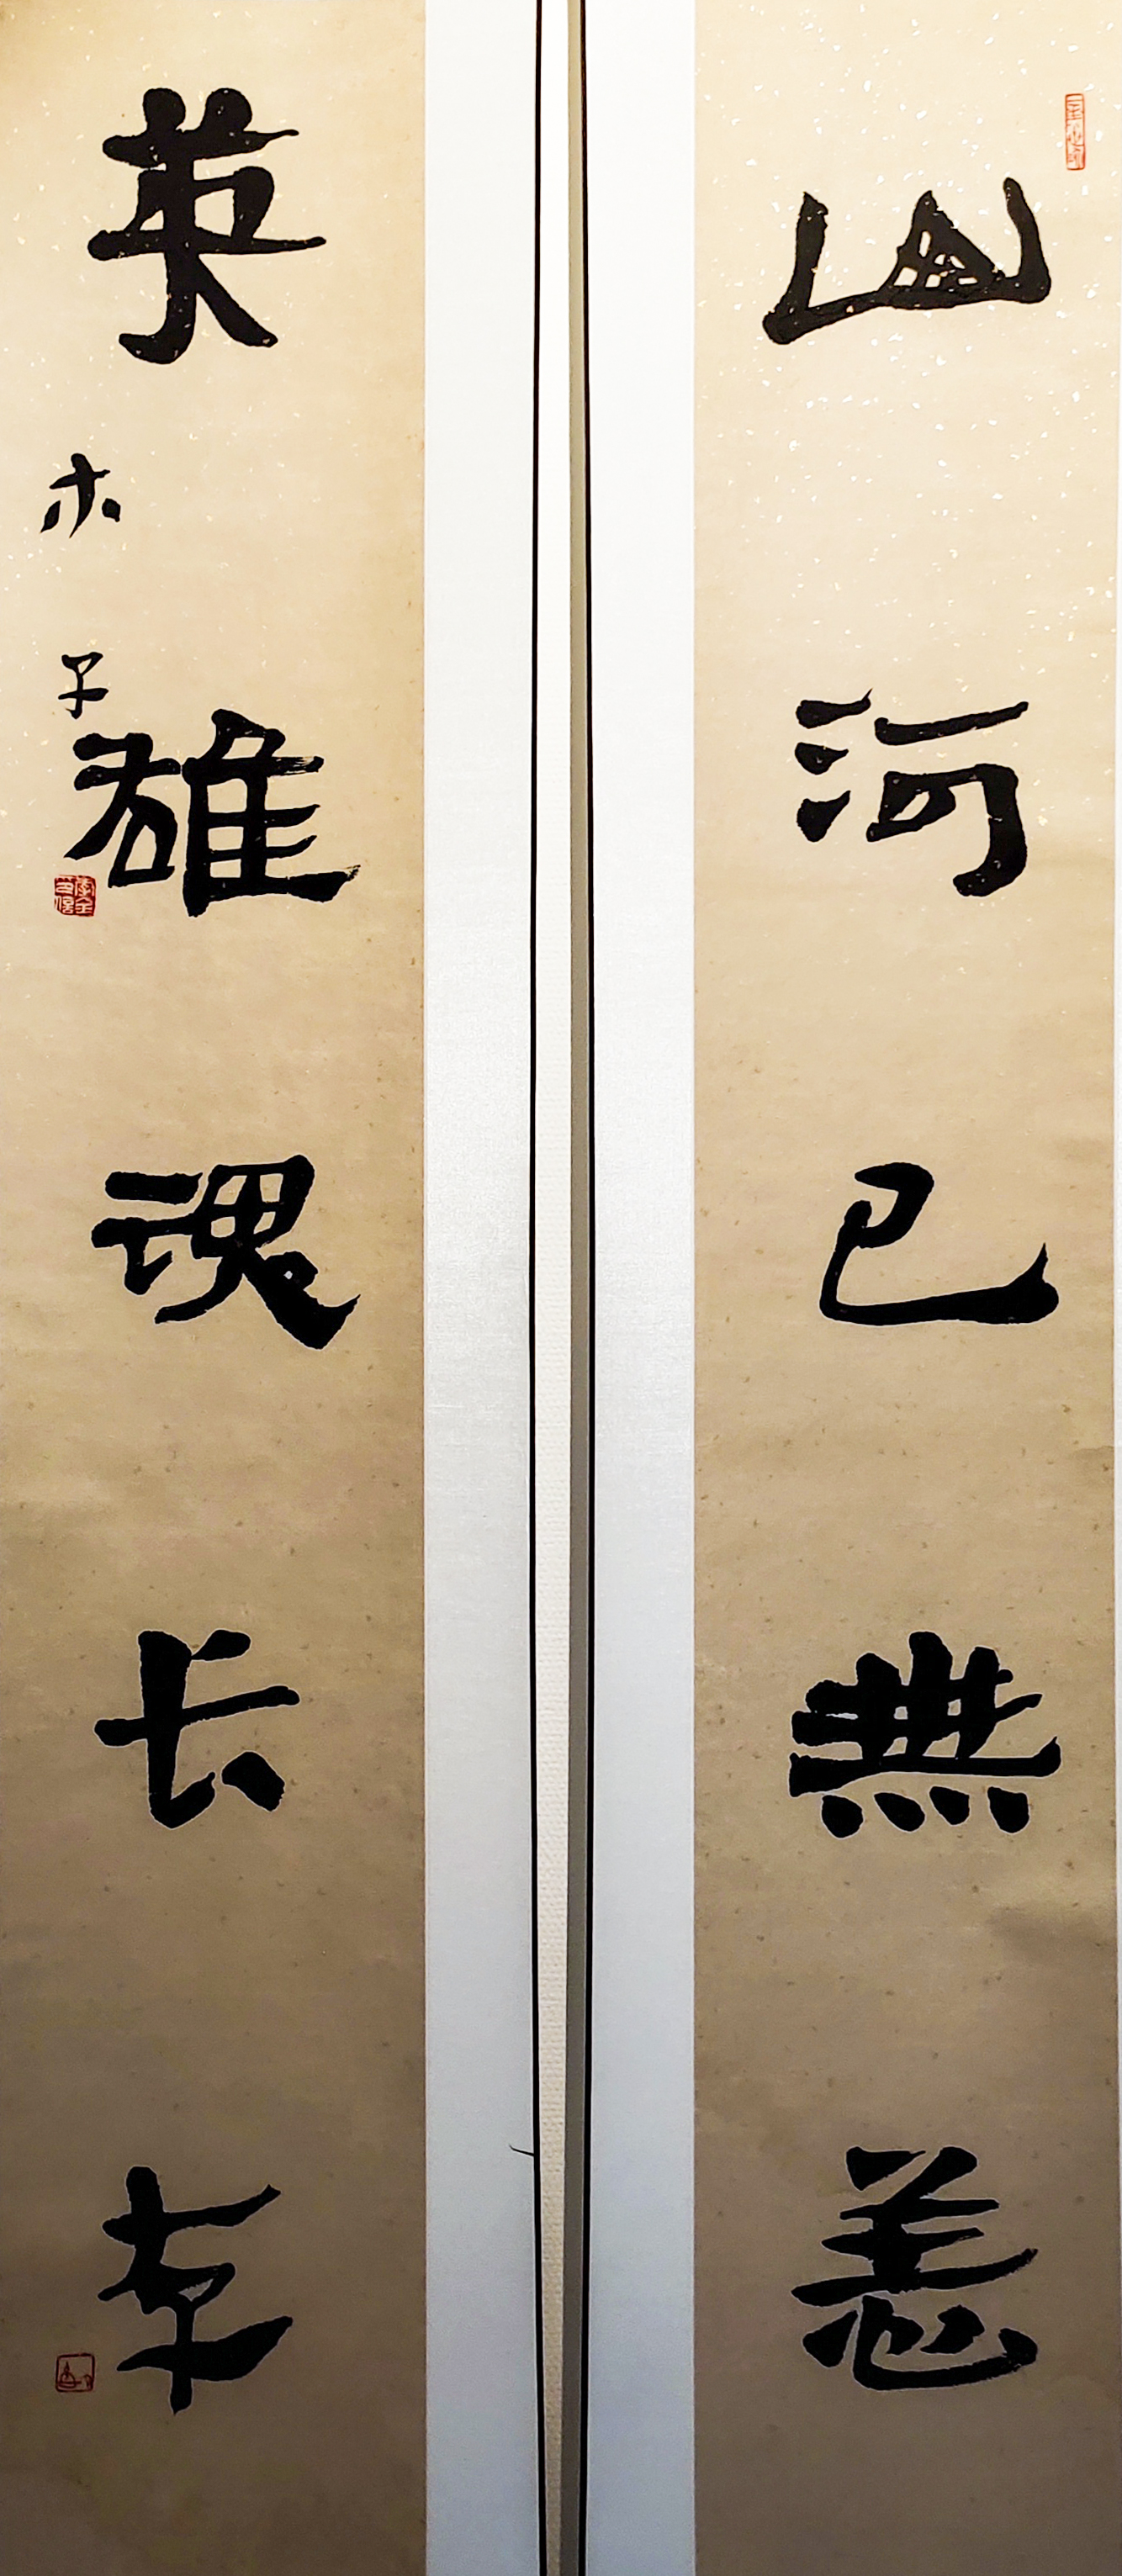 山河已無恙
英雄魂长存
木子